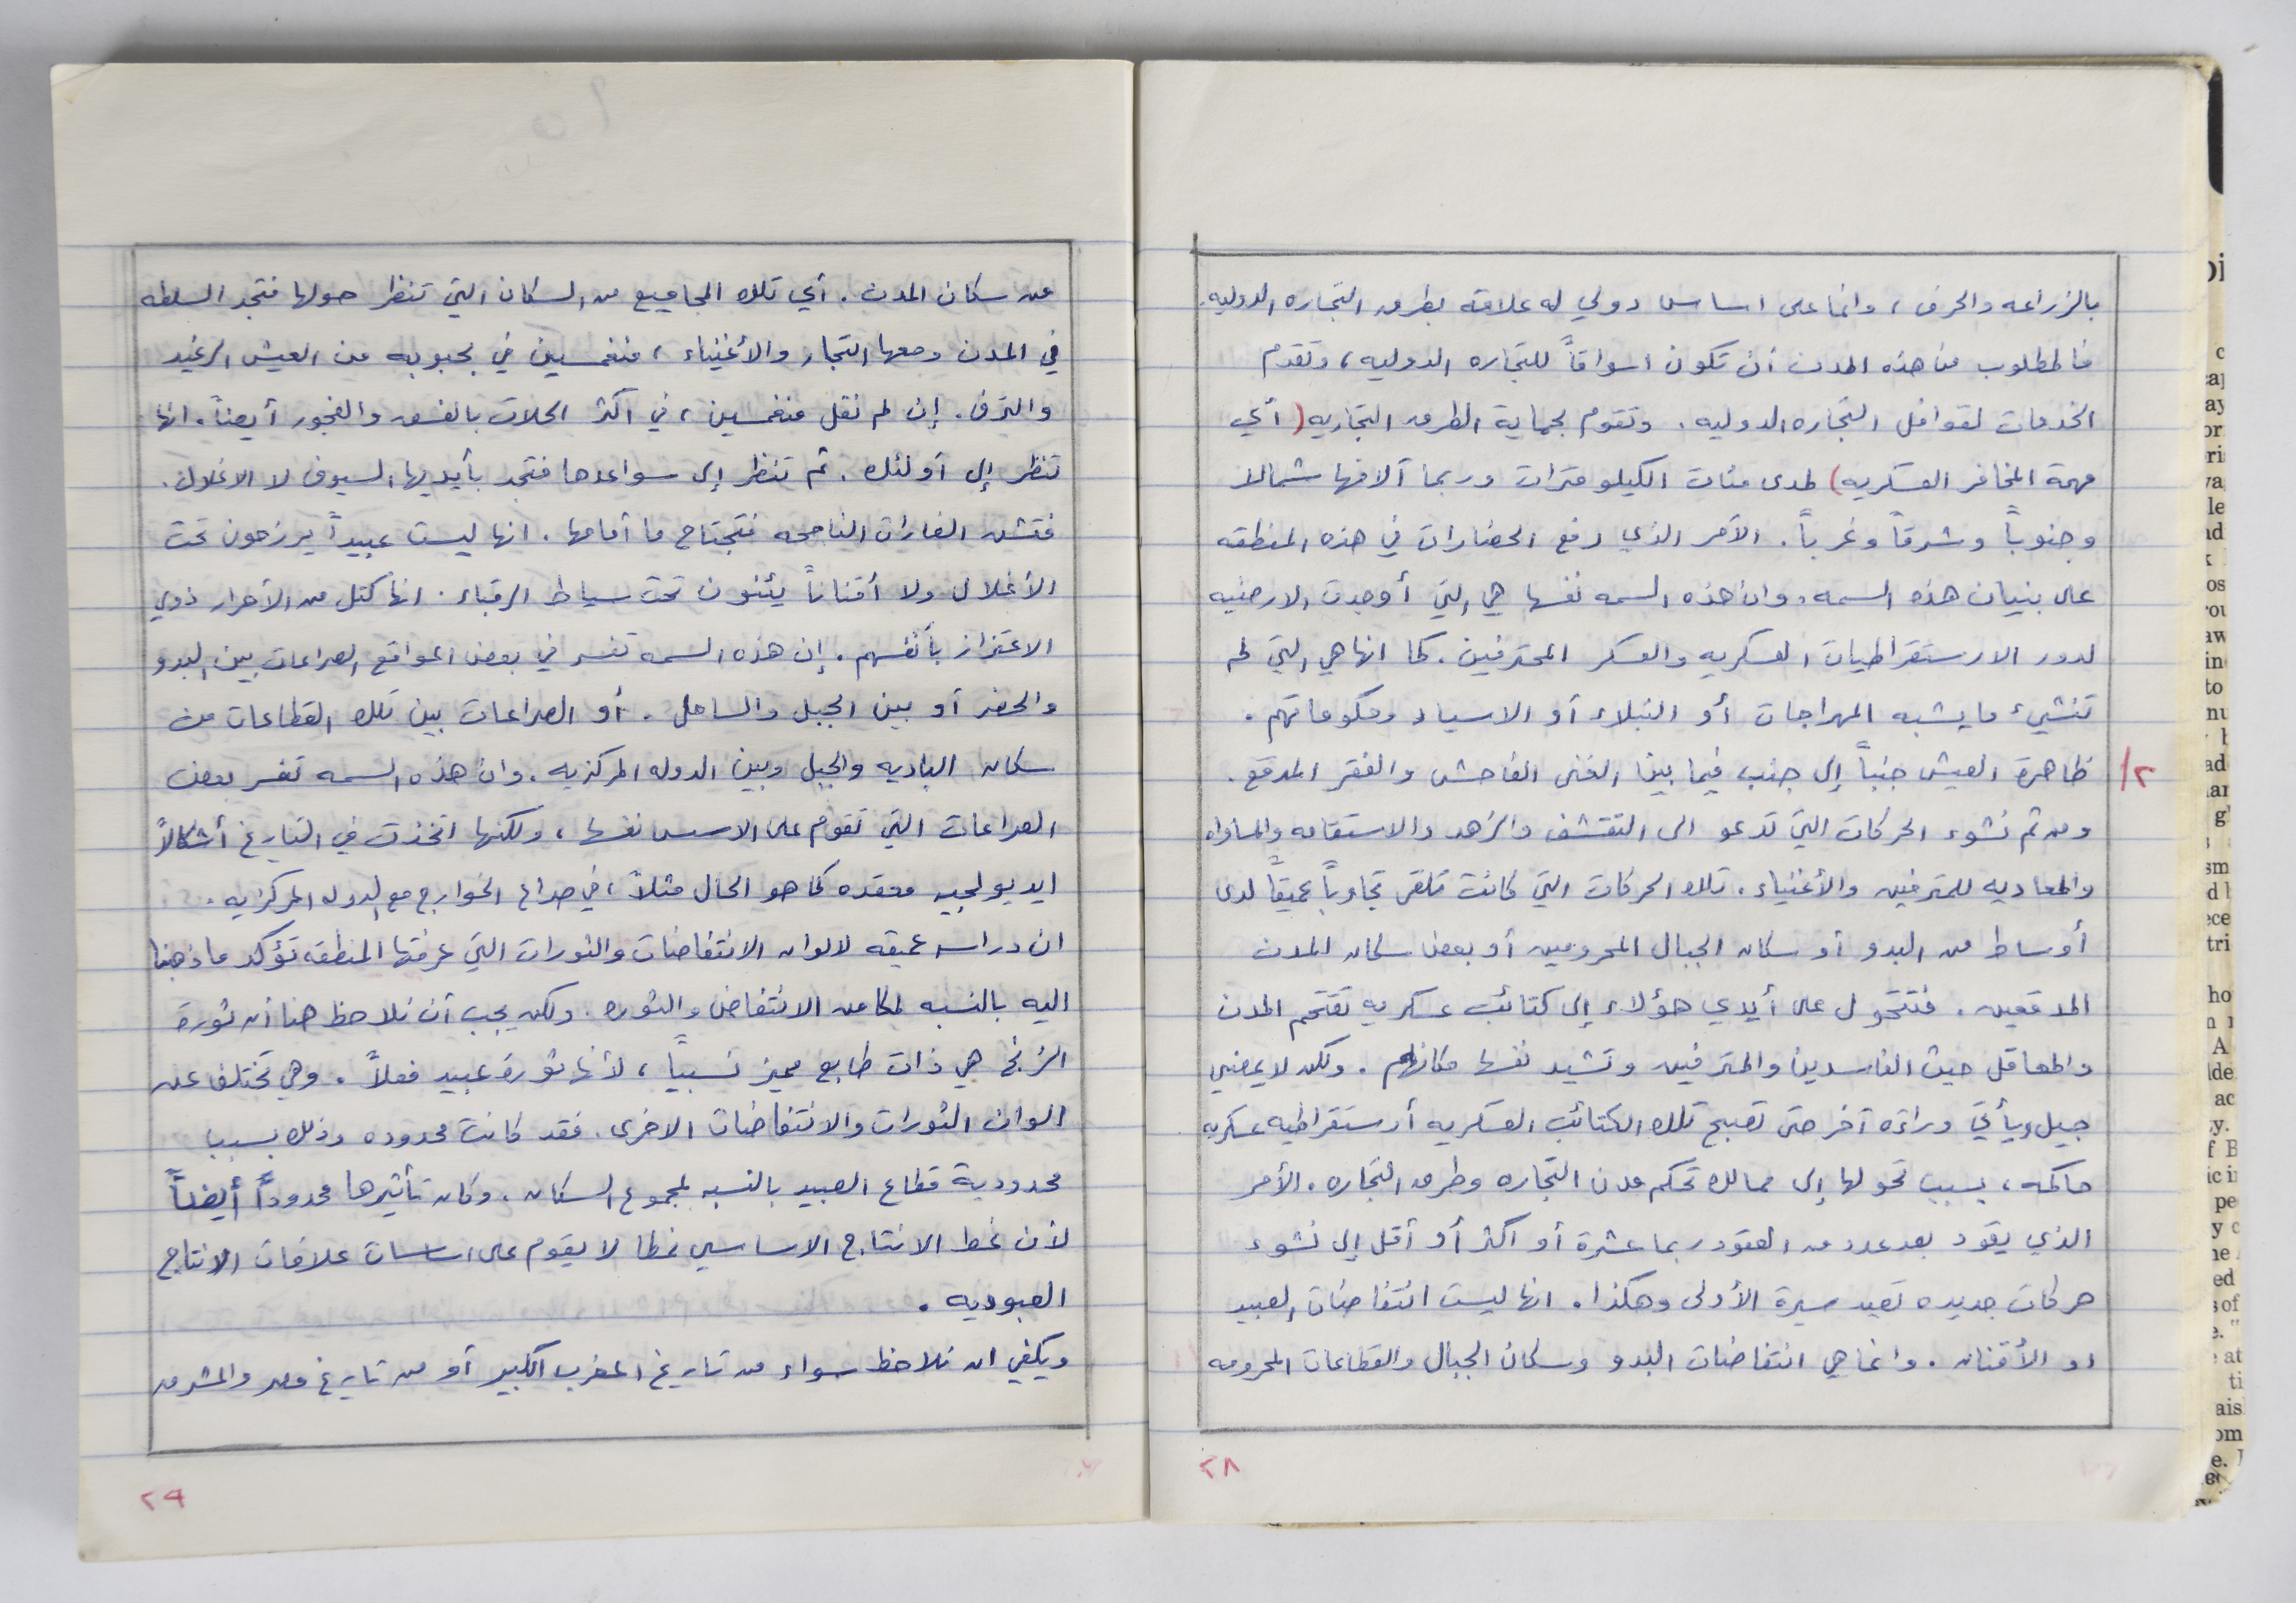 بالزراعه والحرف، وانما على اساس دولي له علاقة بطرق التجاره الدوليه.
فالمطلوب من هذه المدن أن تكون اسواقاً للتجاره الدوليه، وتقدم
الخدمات لقوافل التجاره الدوليه. وتقوم بحماية الطرق التجاريه (أي
مهمة المخافر العسكريه) لمدى مئات الكيلو مترات وربما آلافها شمالا
وجنوباً وشرقاً وغرباً. الأمر الذي دفع الحضارات في هذه المنطقه
على بنيان هذه السمه. وان هذه السمه نفسها هي التي أوجدت الارضيه
لدور الارستقراطيات العسكريه والعسكر المحترفين. كما انها هي التي لم
تنشيء ما يشبه المهراجات أو النبلاء أو الاسياد وحكوماتهم.
٢/ ظاهرة العيش جنباً إلى جنب فيما بين الغنى الفاحش والفقر المدقع.
ومن ثم نشوء الحركات التي تدعو الى التقشف والزهد والاستقامه والمساواه
والمعاديه للمترفين والأغنياء. تلك الحركات التي كانت تلقى تجاوباً عميقاً لدى
أوساط من البدو أو سكان الجبال المحرومين أو بعض سكان المدن
المدقعين. فتتحول على أيدي هؤلاء إلى كتائب عسكريه تقتحم المدن
والمعاقل حيث الفاسدين والمترفين وتشيد نفسها مكانهم. ولكن لا يمضي
جيل ويأتي وراءه آخر حتى تصبح تلك الكتائب العسكريه أرستقراطيه عسكريه
حاكمه، بسبب تحولها إلى ممالك تحكم مدن التجاره وطرق التجاره. الأمر
الذي يقود بعد عدد من العقود ربما عشرة أو اكثر أو أقل إلى نشوء
حركات جديده تعيد سيرة الأولى وهكذا. انها ليست انتفاضات العبيد
او الأقنان. وانما هي انتفاضات البدو وسكان الجبال والقطاعات المحرومه
٢٨
من سكان المدن. أي تلك المجاميع من السكان التي تنظر حولها فتجد السلطه
في المدن ومعها التجار والأغنياء، منغمسين في بحبوبه من العيش الرغيد
والترف. إن لم نقل منغمسين، في اكثر الحلات بالفسق والفجور أيضاً. انها
تنظر إلى أولئك. ثم تنظر إلى سواعدها فتجد بأيديها السيوف لا الاغلال.
فتشن الغارات الناجحه فتجتاح ما أمامها. انها ليست عبيداً يرزحون تحت
الأغلال ولا أقناناً يئنون تحت سياط الرقباء. انها كتل من الأحرار ذوي
الاعتزاز بأنفسهم. إن هذه السمه تفسر في بعض المواقع الصراعات بين البدو
والحضر أو بين الجبل والساحل. أو الصراعات بين تلك القطاعات من
سكان الباديه والجبل وبين الدوله المركزيه. وان هذه السمه تفسر بعض
الصراعات التي تقوم على الاسس نفسها، ولكنها اتخذت في التاريخ أشكالاً
ايديولجيه معقده كما هو الحال مثلاً، في صراع الخوارج مع الدوله المركزيه.
ان دراسه عميقه لالوان الانتفاضات والثورات التي عرفتها المنطقه تؤكد ما ذهبنا
اليه بالنسبه لمكامن الانتفاض والثوره. ولكن يجب أن نلاحظ هنا أن ثورة
الزنج هي ذات طابع مميز نسبياً، لأنها ثورة عبيد فعلاً. وهي تختلف عن
الوان الثورات والانتفاضات الاخرى. فقد كانت محدوده وذلك بسبب
محدودية قطاع العبيد بالنسبه لمجموع السكان. وكان تأثيرها محدوداً أيضاً
لأن نمط الانتاج الاساسي نمطا لا يقوم على اساسات علاقات الانتاج
العبوديه.
ويكفي ان نلاحظ سواء من تاريخ المغرب الكبير أو من تاريخ مصر والمشرق
٢٩